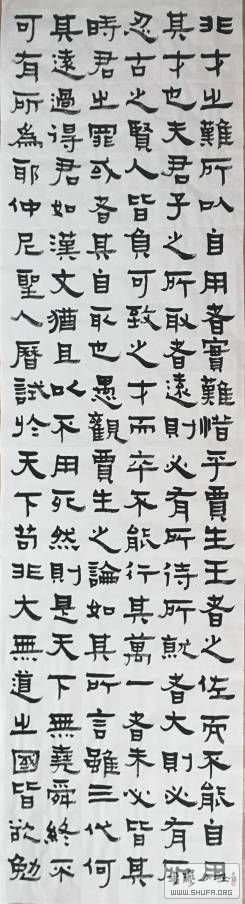 非才之難所以自用者實難惜乎賈生王者之佐而不能自用
其才也夫君子之所取者遠則必有所待所就者大則必有所
忍古之賢人皆負可致之才而卒不能行其萬一者未必皆其
時君之罪或者其自取也愚觀賈生之論如其所言雖三代何
其遠過得君如漢文猶且以不用死然則是天下無堯舜終不
可有所為耶仲尼聖人曆試於天下苟非大無道之國皆欲勉
WWW.SHUFA.ORG